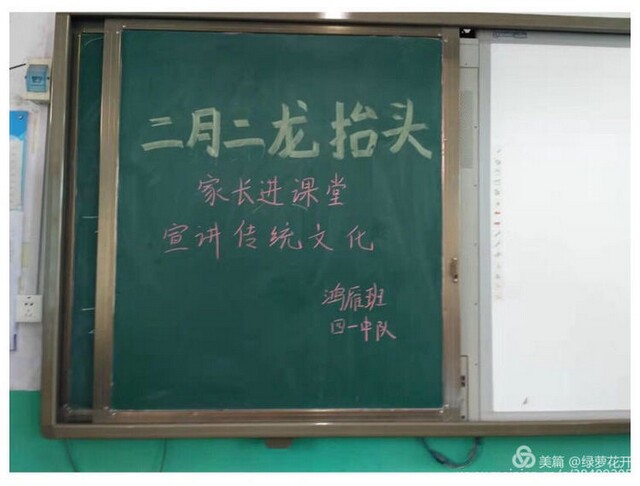 二月二龙抬头
家长进课堂
宣讲传统文化
鸿雁班
四一中队
美篇 @绿萝花开